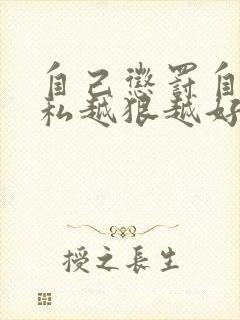 自己懲罰自
私越狠越好
授之長生